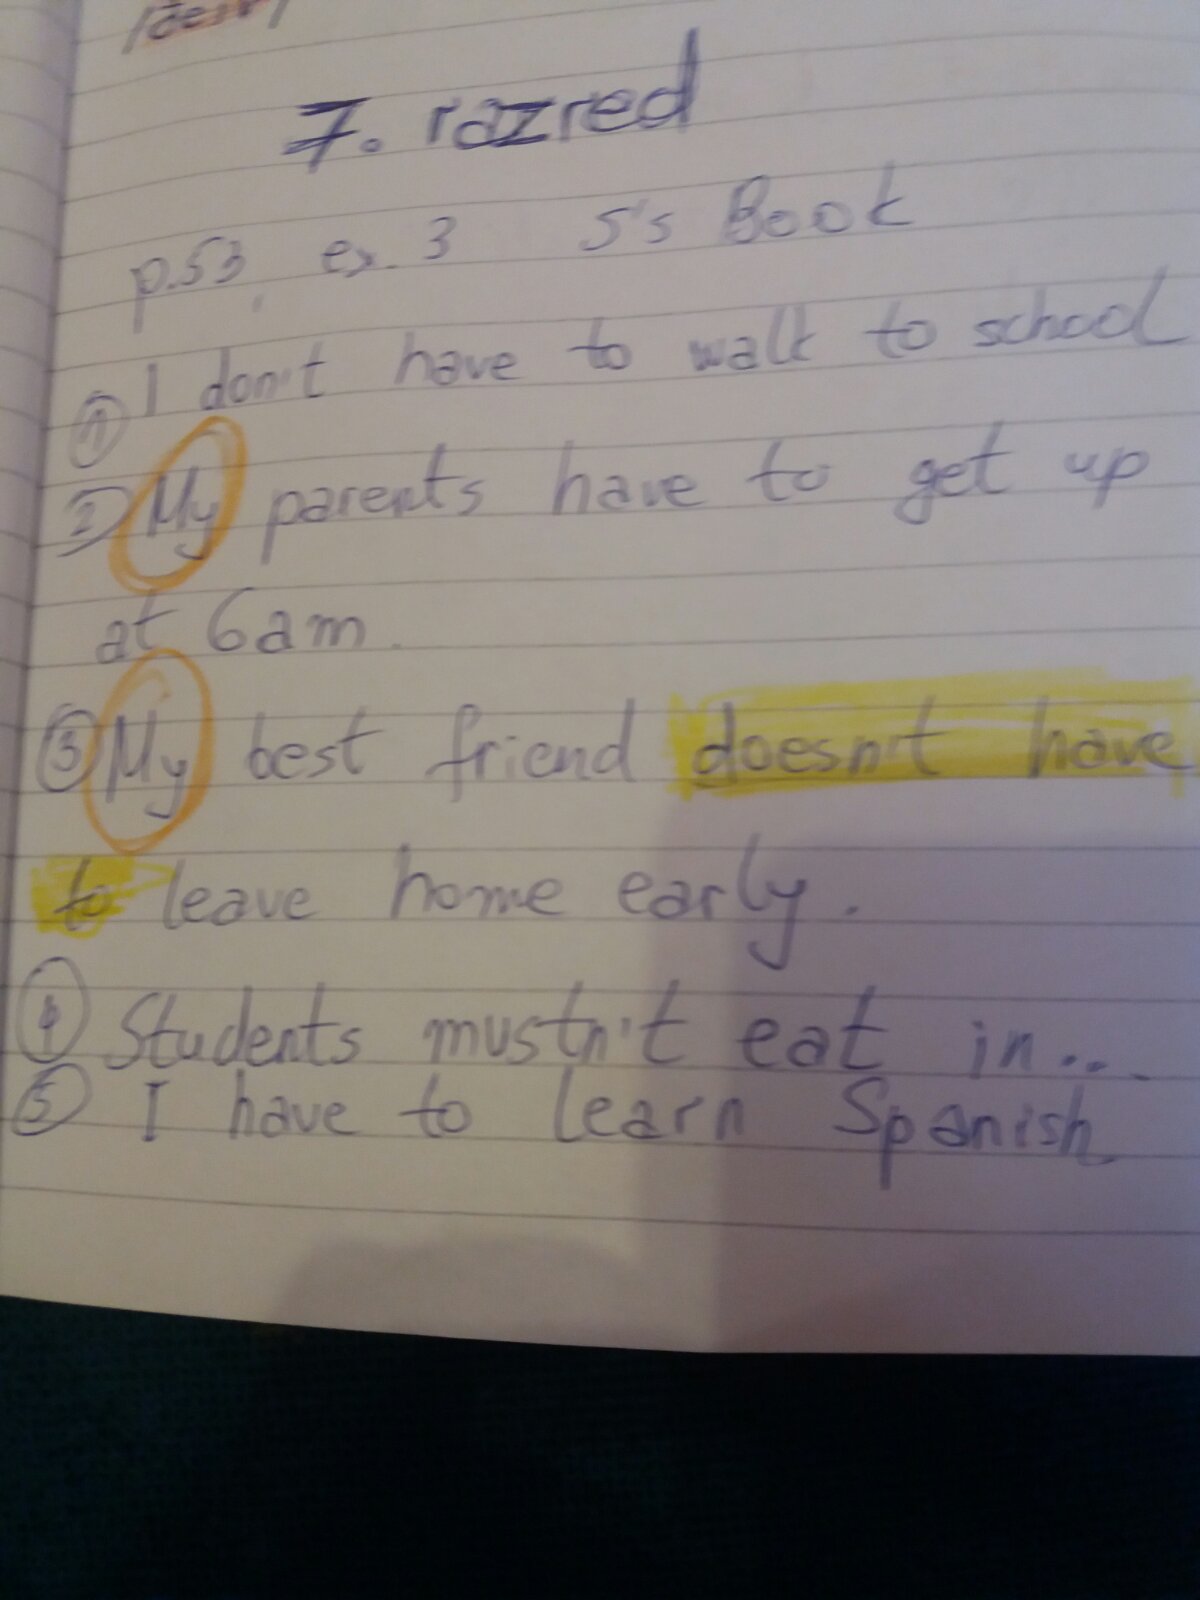 7. razred
p.53, ex. 3 S's Book
① I don't have to walk to school
② My parents have to get up
at 6am.
③ My best friend doesn't have
to leave home early.
④ Students mustn't eat in...
⑤ I have to learn Spanish.